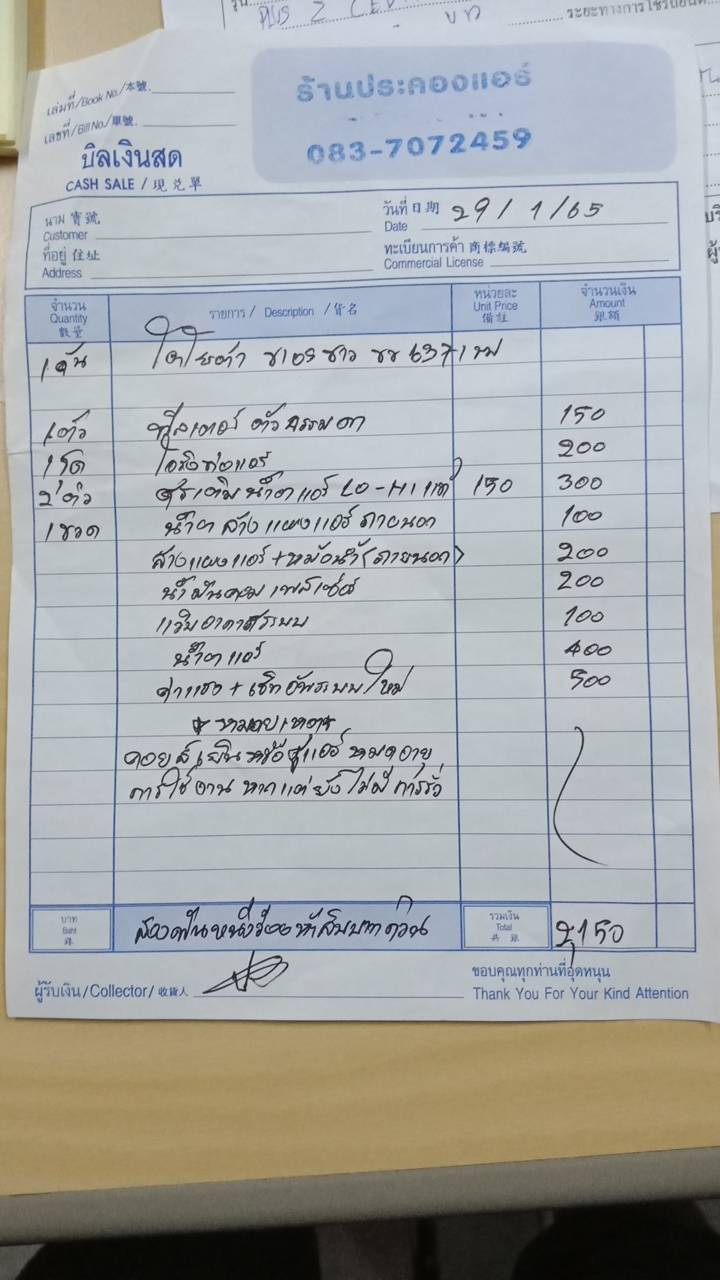 รุ่น
PLUS 2
ขาว
ระยะทางการใช้รถยนต์
เล่มที่/Book No./本號.
เลขที่/Bill No./單號.
บิลเงินสด
CASH SALE / 現兌單
ร้านประคองแอร์
083-7072459
นาม 寶號
Customer
ที่อยู่ 住址
Address
วันที่ 日期 29/1/65
Date
ทะเบียนการค้า 商標編號
Commercial License
จำนวน รายการ / Description / 貨名 หน่วยละ จำนวนเงิน
Quantity Unit Price Amount
數量 備註 銀額
1 คัน โตโยต้า ขาว 6371
1 ตัว ฟิลเตอร์ ตัวธรรมดา 150
1 โอริงท่อแอร์ 200
2 ตัว ศรเติมน้ำยาแอร์ LO-HI แท้ 150 300
1 ขวด น้ำยาล้างแผงแอร์ภายนอก 100
ล้างแผงแอร์+หม้อน้ำ(ภายนอก) 200
น้ำมันคอมเพลสเซอร์ 200
แว็คอากาศระบบ 100
น้ำยาแอร์ 400
ค่าแรง + เซ็ทอัพระบบใหม่ 500
* หมายเหตุ *
คอยล์เย็นหรือตู้แอร์ หมดอายุ
การใช้งาน หากแต่ยังไม่มีการรั่ว
บาท สองพันหนึ่งร้อยห้าสิบบาทถ้วน รวมเงิน 2150
Baht Total
銖 共銀
ผู้รับเงิน/Collector/收貨人
ขอบคุณทุกท่านที่อุดหนุน
Thank You For Your Kind Attention